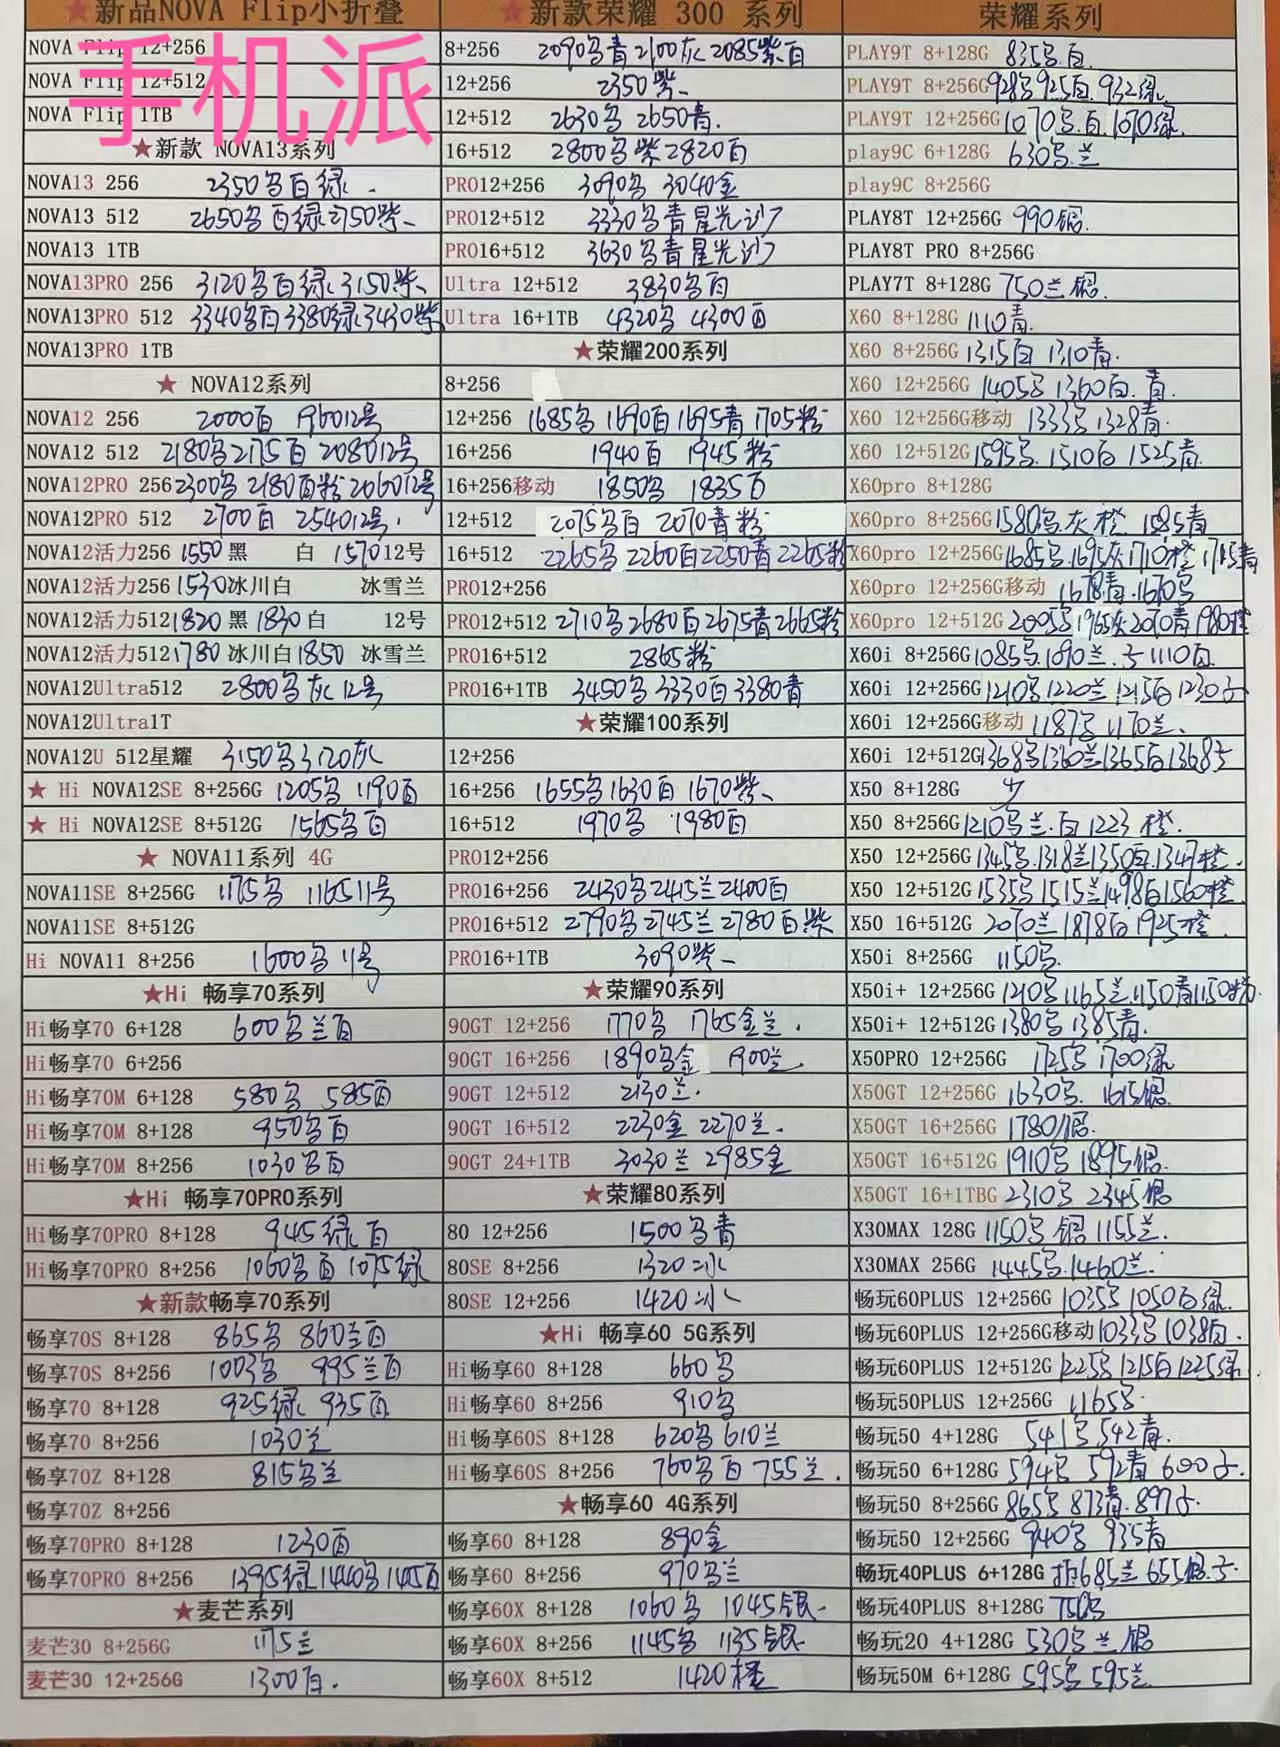 ★新品NOVA Flip小折叠
NOVA Flip 12+256
NOVA Flip 12+512
NOVA Flip 1TB
手机派
★新款 NOVA13系列
NOVA13 256 2350乌白绿
NOVA13 512 2650乌白绿2750紫
NOVA13 1TB
NOVA13PRO 256 3120乌白绿3150紫
NOVA13PRO 512 3340乌白3380绿3430紫
NOVA13PRO 1TB
★ NOVA12系列
NOVA12 256 2000白 196012号
NOVA12 512 2180乌2175白 208012号
NOVA12PRO 256 2300乌 2180白粉 206012号
NOVA12PRO 512 2700白 254012号
NOVA12活力256 1550 黑 白 1570 12号
NOVA12活力256 1530 冰川白 冰雪兰
NOVA12活力512 1820 黑 1830 白 12号
NOVA12活力512 1780 冰川白 1850 冰雪兰
NOVA12Ultra512 2800乌灰12号
NOVA12Ultra1T
NOVA12U 512星耀 3150乌3120灰
★ Hi NOVA12SE 8+256G 1205乌 1190白
★ Hi NOVA12SE 8+512G 1565乌白
★ NOVA11系列 4G
NOVA11SE 8+256G 1175乌 116511号
NOVA11SE 8+512G
Hi NOVA11 8+256 1600乌11号
★Hi 畅享70系列
Hi畅享70 6+128 600乌兰白
Hi畅享70 6+256
Hi畅享70M 6+128 580乌 585白
Hi畅享70M 8+128 950乌白
Hi畅享70M 8+256 1030乌白
★Hi 畅享70PRO系列
Hi畅享70PRO 8+128 945绿白
Hi畅享70PRO 8+256 1060乌白 1075绿
★新款畅享70系列
畅享70S 8+128 865乌 860兰白
畅享70S 8+256 1003乌 995兰白
畅享70 8+128 925绿 935白
畅享70 8+256 1030兰
畅享70Z 8+128 815乌兰
畅享70Z 8+256
畅享70PRO 8+128 1230白
畅享70PRO 8+256 1395绿1440乌1445白
★麦芒系列
麦芒30 8+256G 1175兰
麦芒30 12+256G 1300白
★新款荣耀 300 系列
8+256 2090乌青2100灰2085紫白
12+256 2350紫
12+512 2630乌 2650青
16+512 2800乌紫2820白
PRO12+256 3090乌 3040金
PRO12+512 3330乌青星光沙
PRO16+512 3630乌青星光沙
Ultra 12+512 3830乌白
Ultra 16+1TB 4320乌 4300白
★荣耀200系列
8+256
12+256 1685乌1690白1695青1705粉
16+256 1940白 1945粉
16+256移动 1850乌 1835白
12+512 2075乌白 2070青粉
16+512 2265乌2260白2250青2265粉
PRO12+256
PRO12+512 2710乌2680白2675青2665粉
PRO16+512 2865粉
PRO16+1TB 3450乌3330白3380青
★荣耀100系列
12+256
16+256 1655乌1630白1670紫
16+512 1970乌 1980白
PRO12+256
PRO16+256 2430乌2415兰2400白
PRO16+512 2790乌2745兰2780白紫
PRO16+1TB 3090紫
★荣耀90系列
90GT 12+256 1770乌 1765金兰
90GT 16+256 1890乌金 1900兰
90GT 12+512 2130兰
90GT 16+512 2230金2270兰
90GT 24+1TB 3030兰2985金
★荣耀80系列
80 12+256 1500乌青
80SE 8+256 1320冰
80SE 12+256 1420冰
★Hi 畅享60 5G系列
Hi畅享60 8+128 660乌
Hi畅享60 8+256 910乌
Hi畅享60S 8+128 620乌610兰
Hi畅享60S 8+256 760乌白755兰
★畅享60 4G系列
畅享60 8+128 890金
畅享60 8+256 970乌兰
畅享60X 8+128 1060乌 1045银
畅享60X 8+256 1145乌 1135银
畅享60X 8+512 1420橙
荣耀系列
PLAY9T 8+128G 835乌白
PLAY9T 8+256G 928乌925白932绿
PLAY9T 12+256G 1070乌白1070绿
play9C 6+128G 630乌兰
play9C 8+256G
PLAY8T 12+256G 990银
PLAY8T PRO 8+256G
PLAY7T 8+128G 750兰银
X60 8+128G 1110青
X60 8+256G 1315白 1310青
X60 12+256G 1405乌 1360白青
X60 12+256G移动 1333乌1328青
X60 12+512G 1595乌1510白1525青
X60pro 8+128G
X60pro 8+256G 1580乌灰橙 1585青
X60pro 12+256G 1685乌1695灰1710橙1715青
X60pro 12+256G移动 1678青1670乌
X60pro 12+512G 2005乌1965灰2070青1980橙
X60i 8+256G 1085乌1090兰子1110白
X60i 12+256G 1210乌1220兰1215白1230子
X60i 12+256G移动 1187乌1170兰
X60i 12+512G 1368乌1360兰1365白1368子
X50 8+128G 少
X50 8+256G 1210乌兰白1223橙
X50 12+256G 1345乌1318兰1350白1347橙
X50 12+512G 1535乌1515兰1498白1560橙
X50 16+512G 2070兰1878白1925橙
X50i 8+256G 1150乌
X50i+ 12+256G 1210乌1165兰1150青1150粉
X50i+ 12+512G 1380乌1385青
X50PRO 12+256G 1725乌1700绿
X50GT 12+256G 1630乌 1615银
X50GT 16+256G 1780银
X50GT 16+512G 1910乌1895银
X50GT 16+1TBG 2310乌 2345银
X30MAX 128G 1150乌银1155兰
X30MAX 256G 1445乌1460兰
畅玩60PLUS 12+256G 1035乌1050白绿
畅玩60PLUS 12+256G移动 1033乌1038白
畅玩60PLUS 12+512G 1225乌1215白1225绿
畅玩50PLUS 12+256G 1165乌
畅玩50 4+128G 541乌542青
畅玩50 6+128G 594乌 592青 600子
畅玩50 8+256G 865乌873青897子
畅玩50 12+256G 940乌 935青
畅玩40PLUS 6+128G 685兰655银子
畅玩40PLUS 8+128G 750乌
畅玩20 4+128G 530乌兰银
畅玩50M 6+128G 595乌595兰